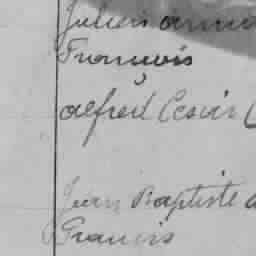 Julien
François
Alfred Cesar
Jean Baptiste
Francis